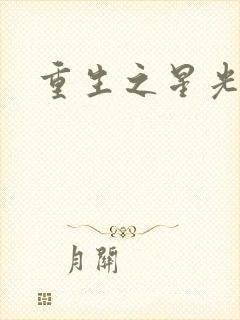 重生之星光
月關